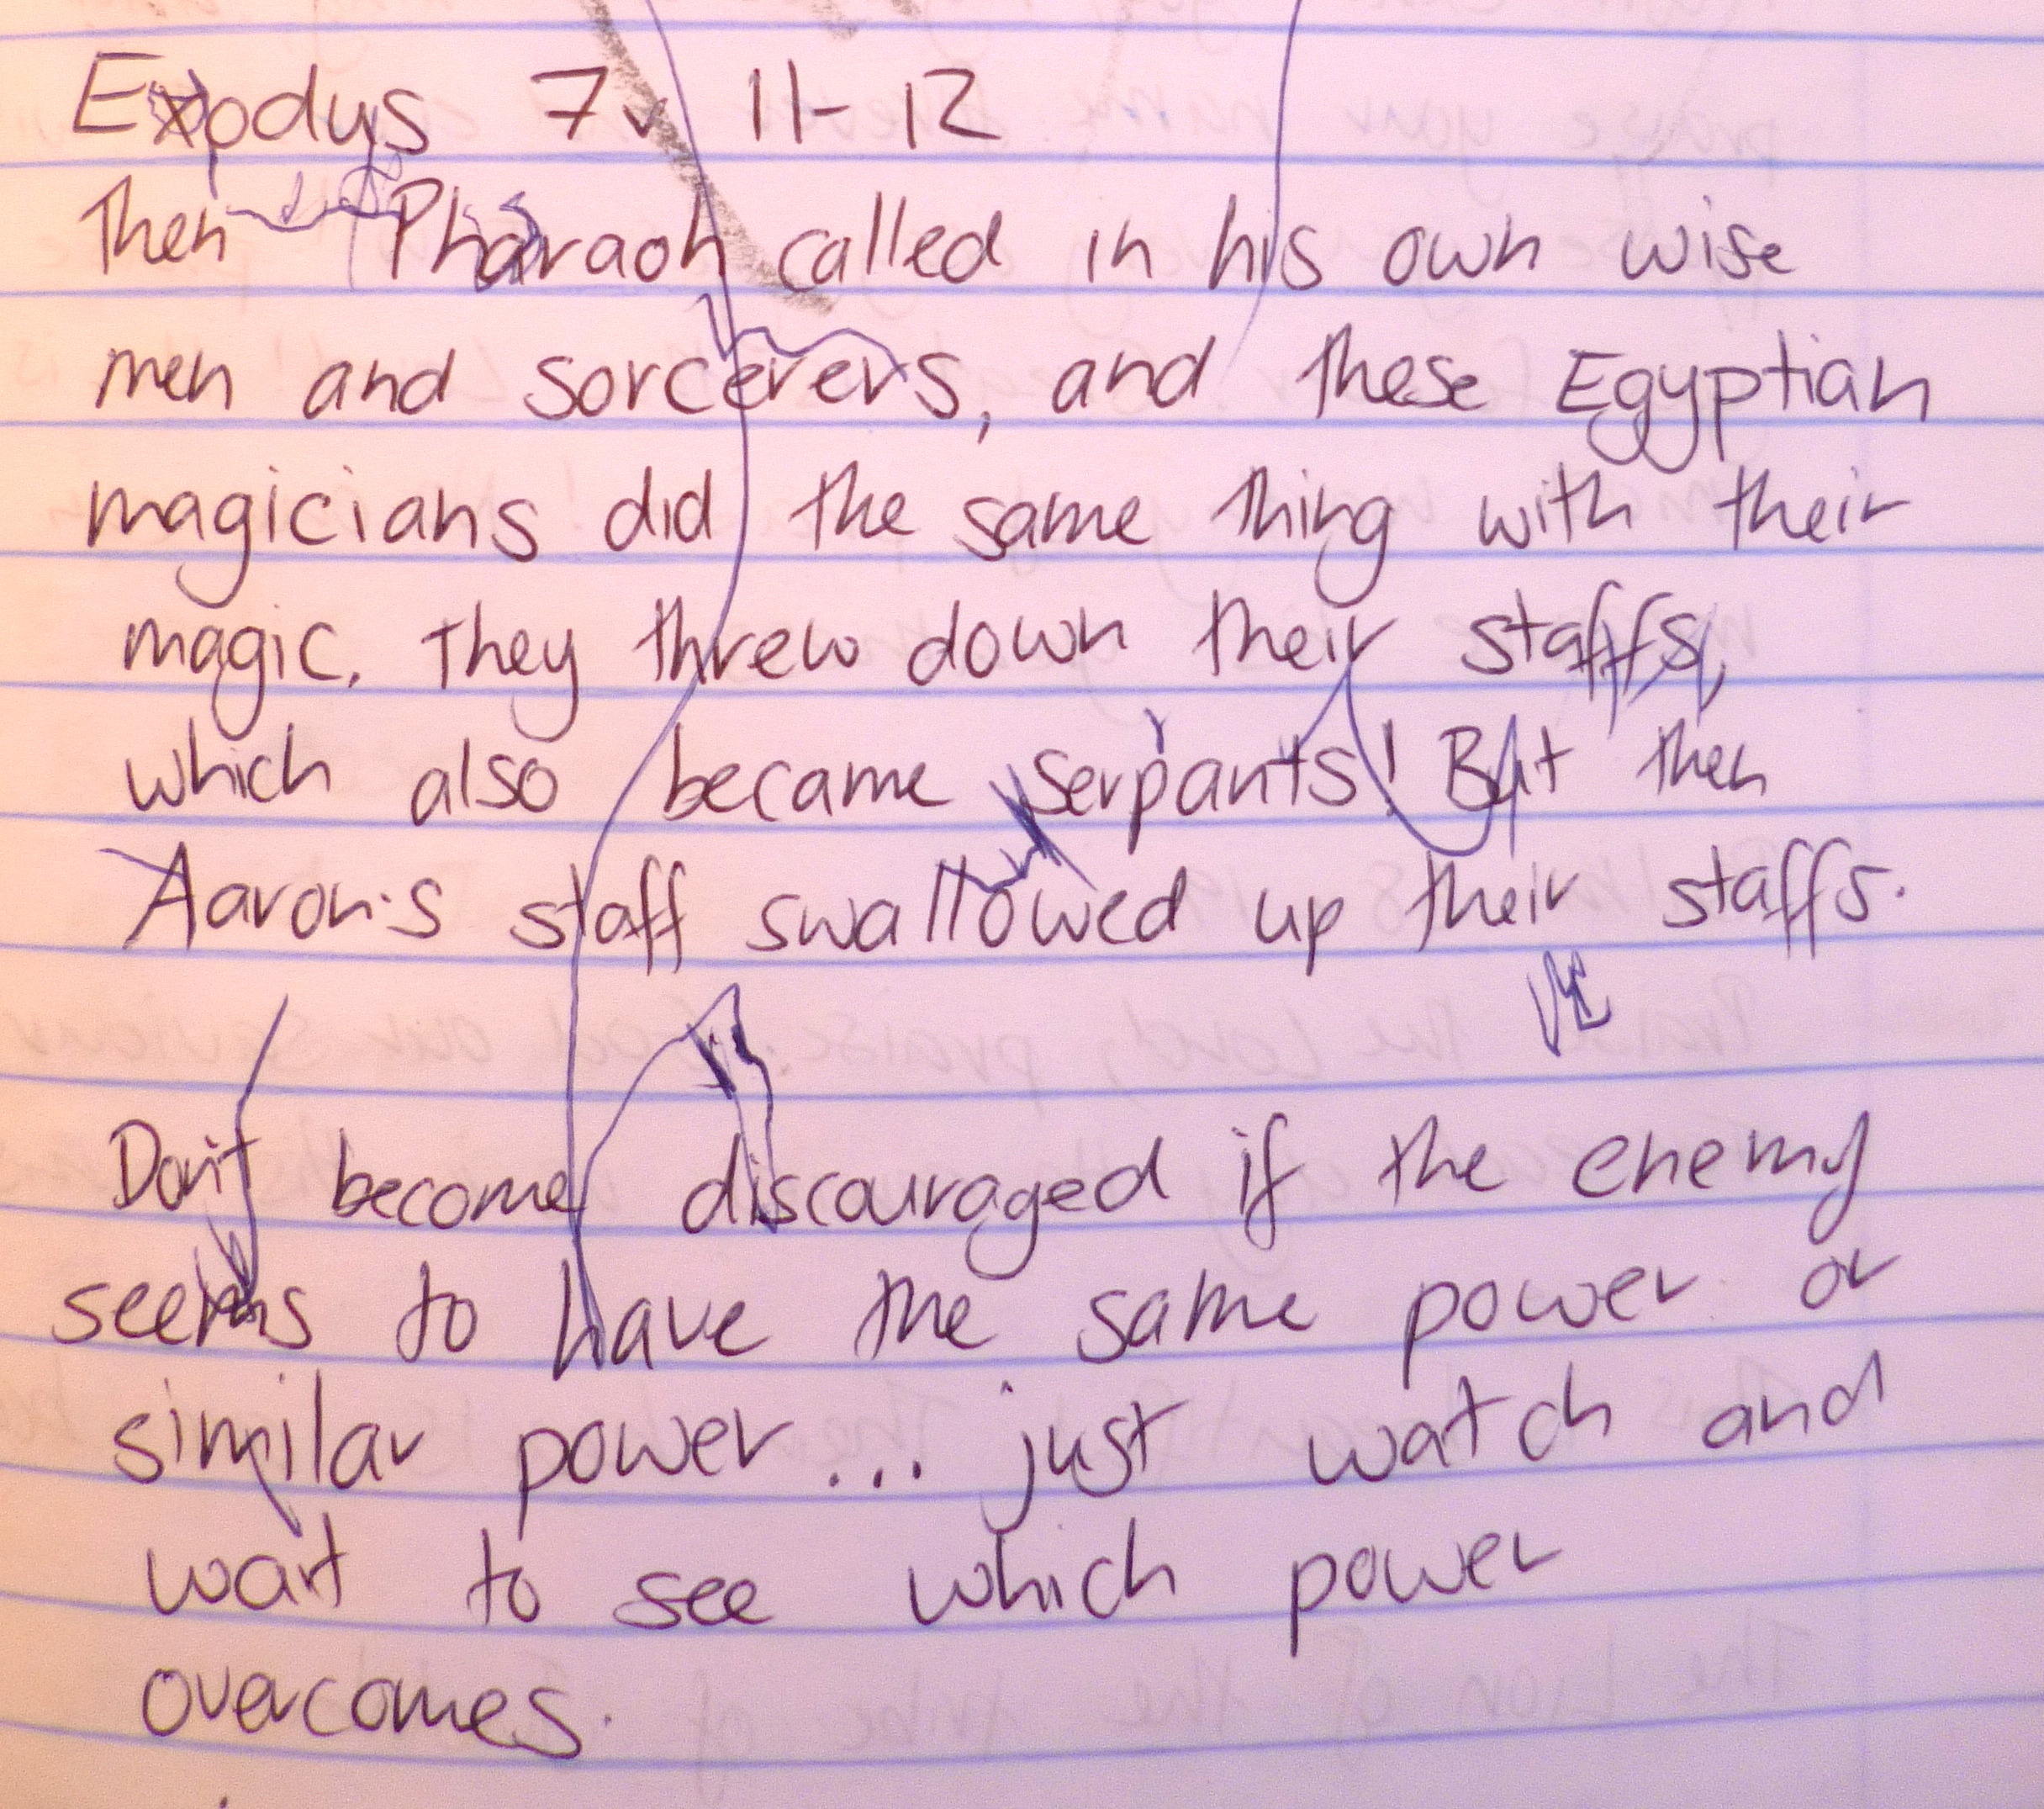 Exodus 7v 11-12
Then Pharaoh called in his own wise
men and sorcerers, and these Egyptian
magicians did the same thing with their
magic. They threw down their staffs,
which also became serpants! But then
Aaron's staff swallowed up their staffs.
Don't become discouraged if the enemy
seems to have the same power or
similar power... just watch and
wait to see which power
overcomes.